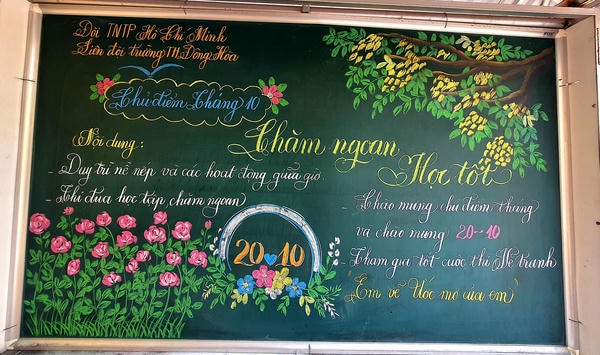 Đội TNTP Hồ Chí Minh
Liên đội trường TH Đông Hòa
Chủ điểm Tháng 10
Chăm ngoan
Học tốt
Nội dung:
- Duy trì nề nếp và các hoạt động giữa giờ
- Thi đua học tập chăm ngoan
20 10
- Chào mừng chủ điểm tháng
và chào mừng 20-10
- Tham gia tốt cuộc thi vẽ tranh
"Em vẽ Ước mơ của em"